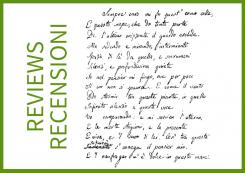 REVIEWS
RECENSIONI
Sempre caro mi fu quest'ermo colle,
E questa siepe, che da tanta parte
De l'ultimo orizzonte il guardo esclude.
Ma sedendo e mirando, interminato
Spazio di là da quella, e sovrumani
Silenzi, e profondissima quiete
Io nel pensier mi fingo, ove per poco
Il cor non si spaura. E come il vento
Odo stormir tra queste piante, io quello
Infinito silenzio a questa voce
Vo comparando: e mi sovvien l'eterno,
E le morte stagioni, e la presente
E viva, e 'l suon di lei. Così tra questa
s'annega il pensier mio:
E 'l naufragar m'è dolce in questo mare.